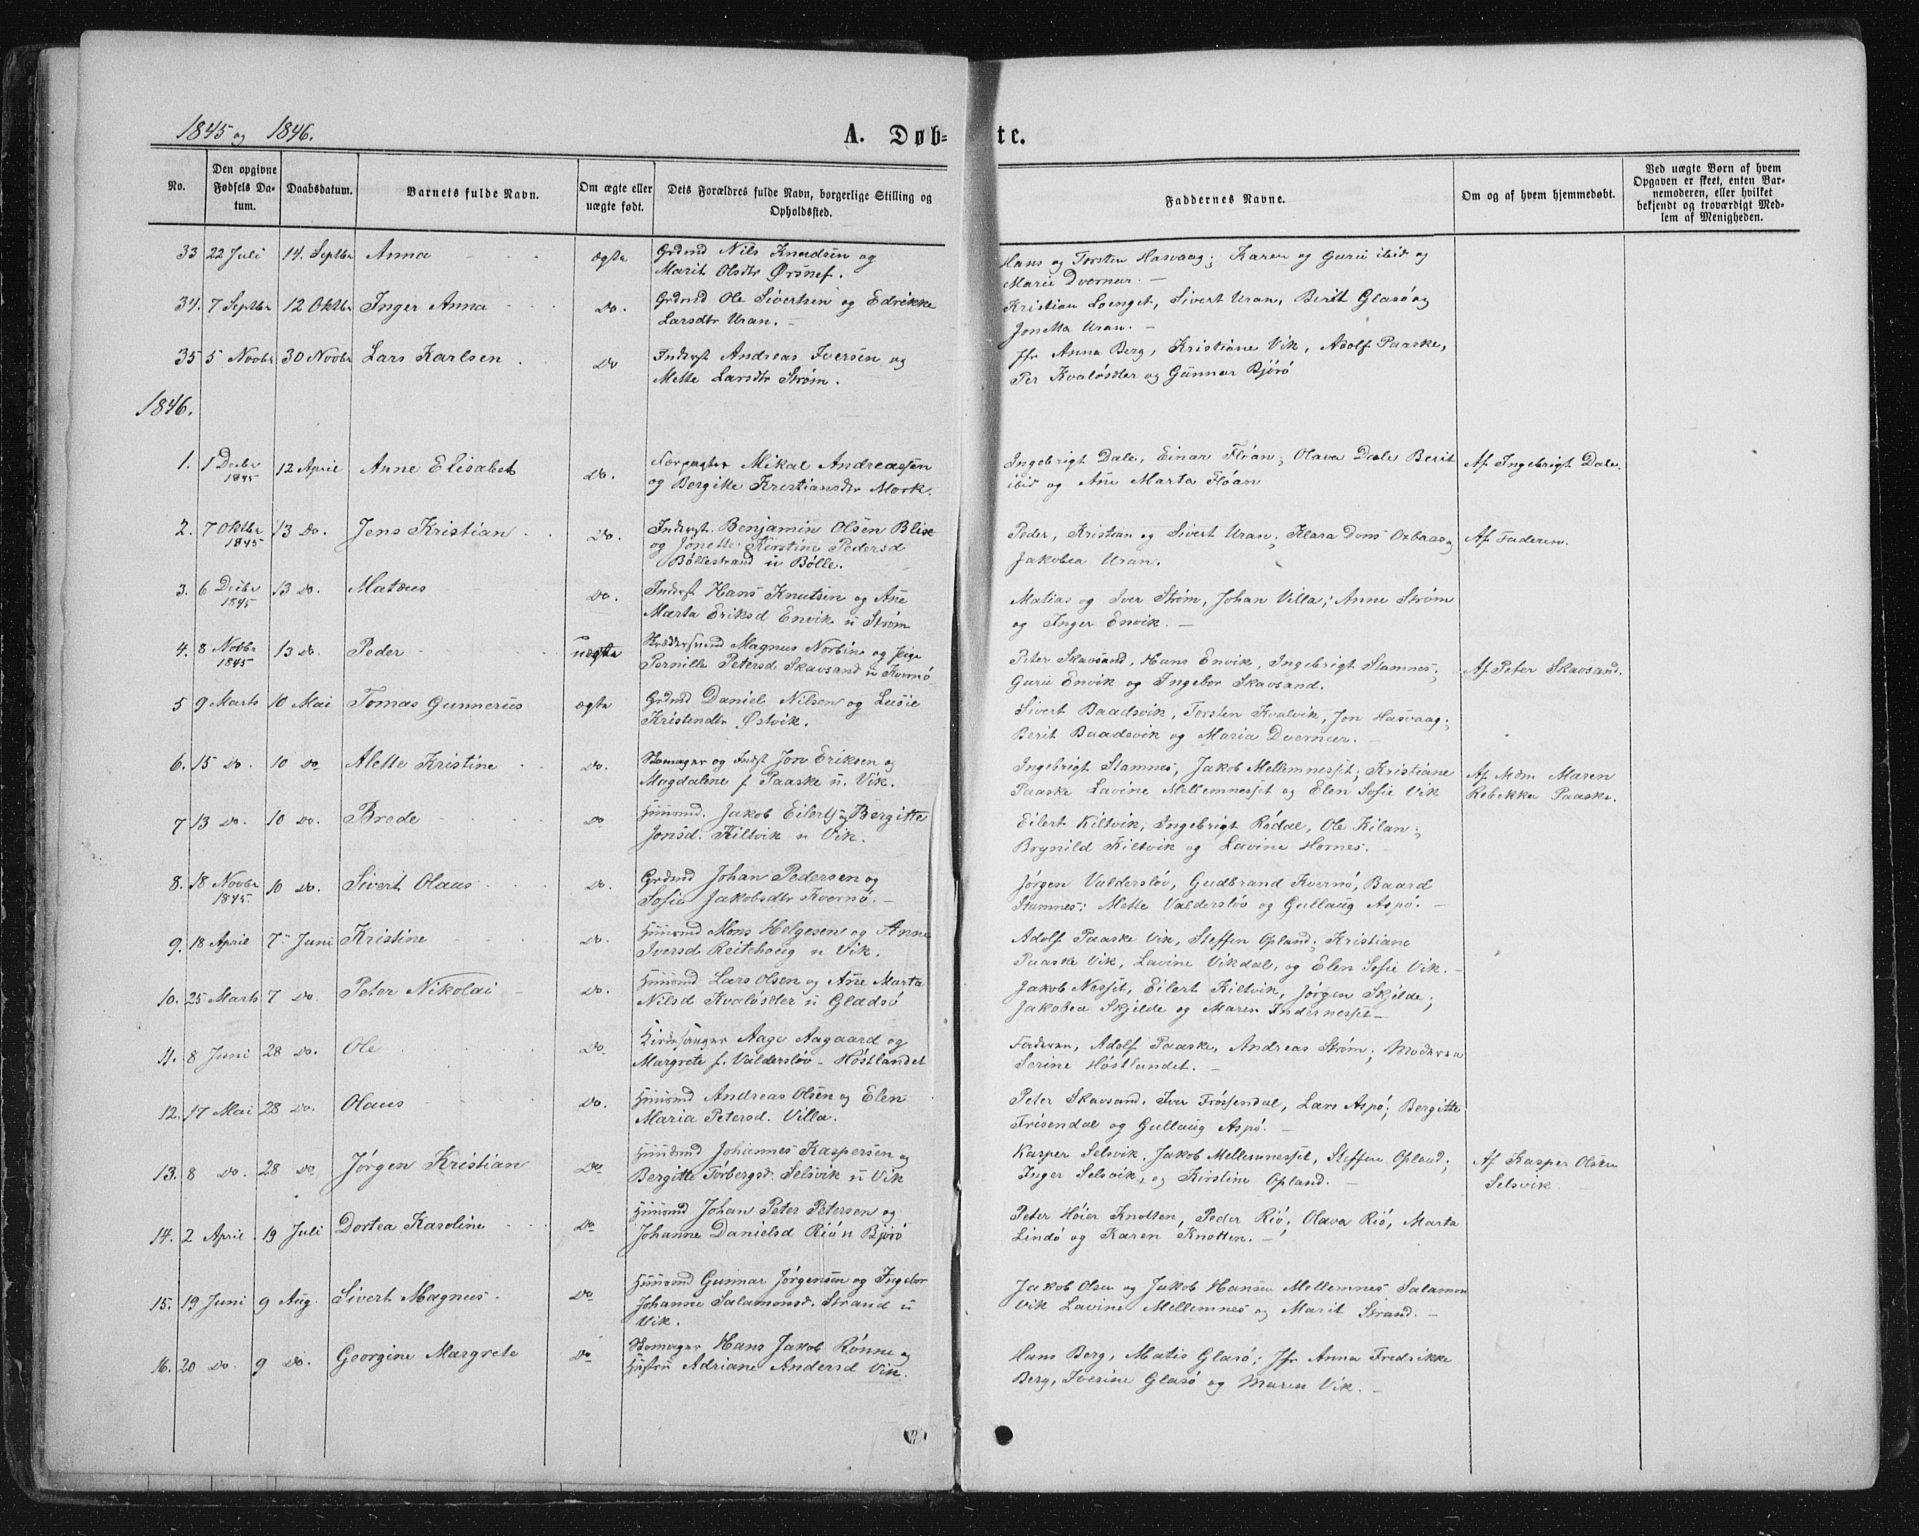 1845 og 1846.
A. Døb-
te.
No.
Den opgivne
Fødsels Da-
tum.
Daabsdatum.
Barnets fulde Navn.
Om ægte eller
uægte født.
Dets Forældres fulde Navn, borgerlige Stilling og
Opholdssted.
Faddernes Navne.
Om og af hvem hjemmedøbt.
Ved uægte Børn af hvem
Opgaven er skeet, enten Bar-
nemoderen, eller hvilket
bekjendt og troværdigt Med-
lem af Menigheden.
33 22 Juli 14. Septbr Anna ægte Grdmd Nils Knudsen og
Marit Olsdtr Ørsnef.
Hans og Torsten Hasvaag; Karen og Guru ibid og
Marie Dvernur. —
34. 7 Septbr 12 Oktbr Inger Anna Do. Grdmd Ole Sivertsen og Edrikke
Larsdtr Uran. —
Kristian Loenget, Sivert Uran, Berit Glasö og
Jonetta Uran. —
35 5 Novbr 30 Novbr Lars Karlsen Do Inderst Andreas Iversen og
Mette Larsdtr Strøm.
Jfr Anna Berg, Kristiane Vik, Adolf Paaske,
Per Kvalösæter og Gunnar Bjørö
1846.
1. 1 Decbr 12 April Anne Elisabet Do. Mikal Andreassen
1845
og Bergitte Kristiansdtr Mork.
Ingebrigt Dale, Einar Flöan; Olava Dale Berit
ibid og Ane Marta Flöan
Af Ingebrigt Dale.
2. 7 Oktbr 13 Do. Jens Kristian Do. Inderst. Benjamin Olsen Blix
1845
og Jonette Kirstine Pedersd
Böllestrand u Bölle.
Peder, Kristian og Sivert Uran; Klara Dons Oxbaas
Jakobea Uran.
Af Faderen.
3. 6 Decbr 13 Do. Matæus Do. Inderst Hans Knutsen og Ane
1845
Marta Eriksd Envik u Strøm
Matias og Iver Strøm, Johan Villa; Anne Strøm
og Inger Envik. —
4. 8 Novbr 13 Do. Peder uægte Magnus Norbin og Pige
1845
Pernille Petersd Skavsand u Kvernö
Peter Skavsand, Hans Envik, Ingebrigt Stamnes;
Guru Envik og Ingebor Skavsand.
Af Peter Skavsand.
5 9 Marts 10 Mai Tomas Gunnerius ægte Grdmd Daniel Nilsen og Lusie
Kristendtr Østvik.
Sivert Baadsvik, Torsten Kvalvik, Jon Hasvaag;
Berit Baadsvik og Maria Dvernur. —
6. 15 Do. 10 Do Alette Kristine Do. Skomager og Indst Jon Eriksen og
Magdalene f. Paaske u. Vik.
Ingebrigt Stamnes, Jakob Mellemnesset; Kristiane
Paaske Lavine Mellemnesset og Elen Sofie Vik
Af Mdm Maren
Rebekka Paaske.
7 13 Do. 10 Do. Brede Do Huusmd. Jakob Eilerts og Bergitte
Jonsd. Kiltvik u Vik.
Eilert Kiltvik, Ingebrigt Rödal, Ole Kilan;
Brynild Kiltvik og Lavine Hornes.
8. 18 Novbr 10 Do. Sivert Olaus Do. Grdmd Johan Pedersen og
1845
Sofie Jakobsdtr Kvernö. —
Jörgen Valderslöv, Gudbrand Kvernö, Baard
Stamnes; Mette Valderslöv og Gullaug Aspö. —
9. 18 April 7 Juni Kristine Do. Huusmd Mons Helgesen og Anne
Iversd Reitehoug u Vik.
Adolf Paaske Vik, Steffen Opland; Kristiane
Paaske Vik, Lavine Vikdal, og Elen Sofie Vik. —
10. 25 Marts 7 Do. Peter Nikolai Do. Huusmd Lars Olsen og Ane Marta
Nilsd Kvalösæter u Gladsö
Jakob Nesset, Eilert Kiltvik, Jörgen Skjelde;
Jakobea Skjelde og Maren Indernesset —
11. 8 Juni 28 Do. Ole Do. Kirkesanger Aage Aagaard og
Margrete f. Valderslöv – Höstlandet
Faderen, Adolf Paaske, Andreas Strøm; Moderen
Serine Höstlandet. —
12. 17 Mai 28 Do. Olaus Do. Huusmd Andreas Olsen og Elen
Maria Petersd. Villa.
Peter Skavsand. Iver Frösendal, Lars Aspö; Bergitte
Frösendal og Gullaug Aspö. —
13. 8 Do. 28 Do Jørgen Kristian Do Huusmd Johannes Kaspersen og
Bergitte Torbergsd. Selsvik u Vik
Kasper Selsvik, Jakob Mellemnesset, Steffen Opland;
Inger Selsvik, og Kirstine Opland. —
Af Kasper Olsen
Selsvik.
14. 2 April. 19 Juli Dortea Karoline Do Huusmd Johan Peter Petersen og
Johanne Danielsd Riö u Björö
Peter Höier Knotten, Peder Riö; Olava Riö, Marta
Lindö og Karen Knotten. —
15. 19 Juni 9 Aug. Sivert Magnus. Do Huusmd Gunnar Jørgensen og Ingebor
Johanne Salamonsd. Strand u
Vik.
Jakob Olsen og Jakob Hansen Mellemnes Salamon
Vik Lavine Mellemnes og Marit Strand. —
16. 20 Do. 9 Do. Georgine Margrete Do Skomager Hans Jakob Rönne og
Hustru Adriane Andersd Vik.
Hans Berg, Matis Glasö; Jfr Anna Fredrikke
Berg, Iverine Glasö og Maren Vik. —